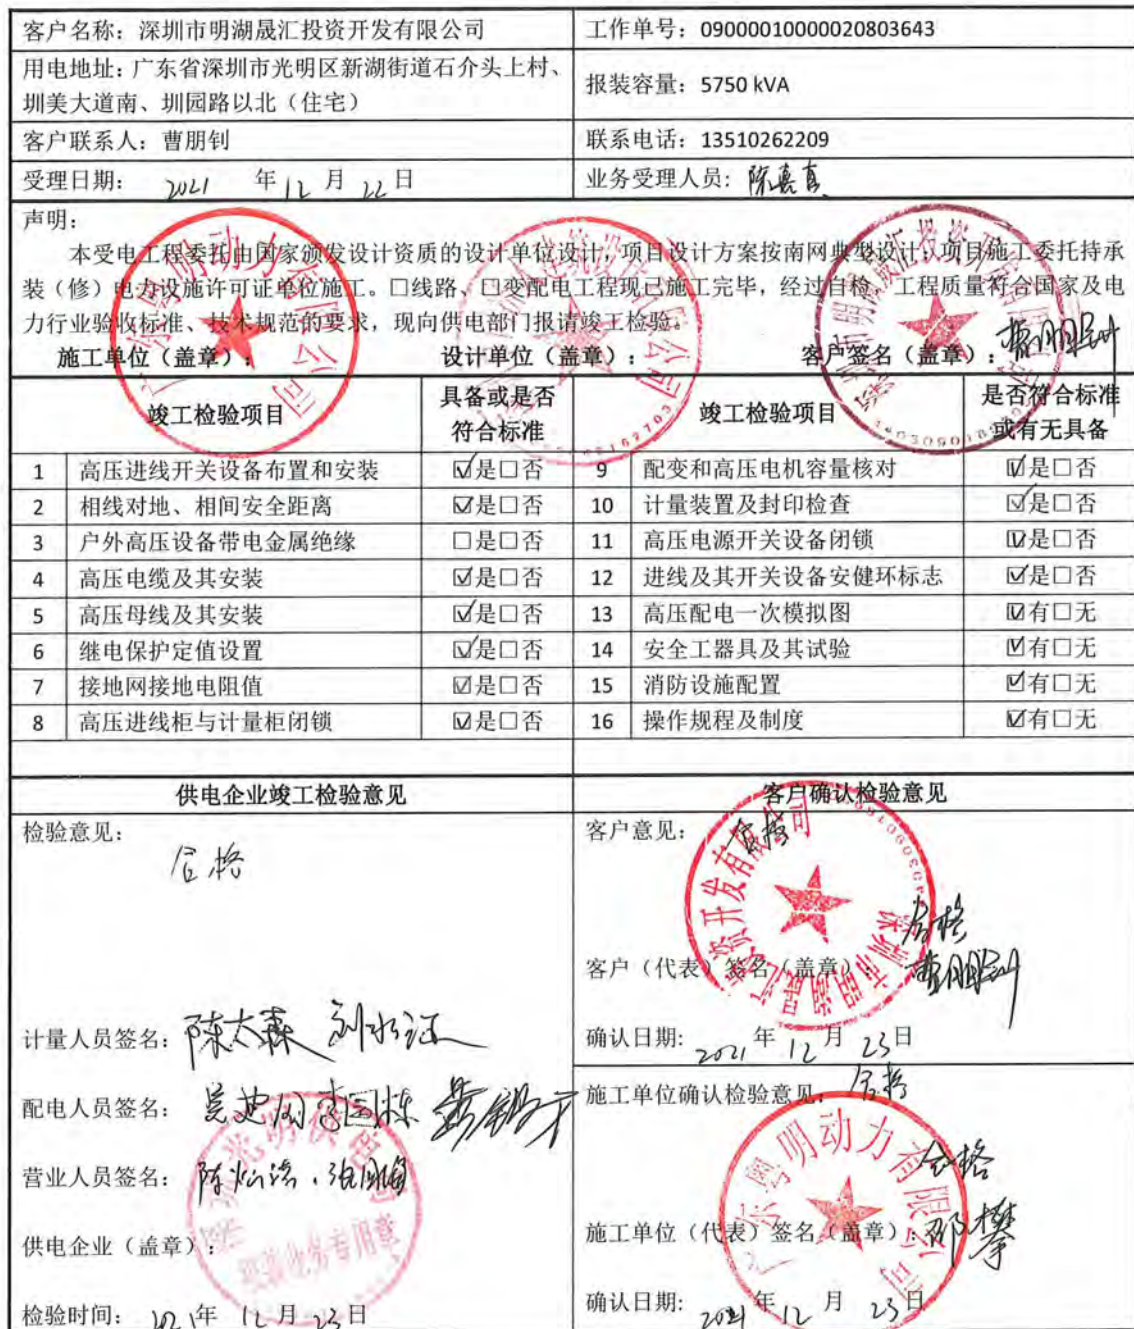 客户名称：深圳市明湖晟汇投资开发有限公司
工作单号：09000010000020803643
用电地址：广东省深圳市光明区新湖街道石介头上村、
圳美大道南、圳园路以北（住宅）
报装容量：5750 kVA
客户联系人：曹朋钊
联系电话：13510262209
受理日期： 2021 年 12 月 22 日
业务受理人员：
声明：
本受电工程委托由国家颁发设计资质的设计单位设计，项目设计方案按南网典型设计，项目施工委托持承
装（修）电力设施许可证单位施工。□线路、☑变配电工程现已施工完毕，经过自检，工程质量符合国家及电
力行业验收标准、技术规范的要求，现向供电部门报请竣工检验。
施工单位（盖章）： 设计单位（盖章）： 客户签名（盖章）：曹朋钊
竣工检验项目 具备或是否符合标准 竣工检验项目 是否符合标准或有无具备
1 高压进线开关设备布置和安装 ☑是□否 9 配变和高压电机容量核对 ☑是□否
2 相线对地、相间安全距离 ☑是□否 10 计量装置及封印检查 ☑是□否
3 户外高压设备带电金属绝缘 □是□否 11 高压电源开关设备闭锁 ☑是□否
4 高压电缆及其安装 ☑是□否 12 进线及其开关设备安健环标志 ☑是□否
5 高压母线及其安装 ☑是□否 13 高压配电一次模拟图 ☑有□无
6 继电保护定值设置 ☑是□否 14 安全工器具及其试验 ☑有□无
7 接地网接地电阻值 ☑是□否 15 消防设施配置 ☑有□无
8 高压进线柜与计量柜闭锁 ☑是□否 16 操作规程及制度 ☑有□无
供电企业竣工检验意见
检验意见：
合格
计量人员签名：陈太森
配电人员签名：
营业人员签名：
供电企业（盖章）：
检验时间： 2021年 12 月 23 日
客户确认检验意见
客户意见：
合格
合格
客户（代表）签名（盖章） 曹朋钊
深圳市明湖晟汇投资开发有限公司
确认日期: 2021 年 12 月 23 日
施工单位确认检验意见： 合格
合格
施工单位（代表）签名（盖章）：邵攀
广东粤明动力有限公司
确认日期: 2021 年 12 月 23 日